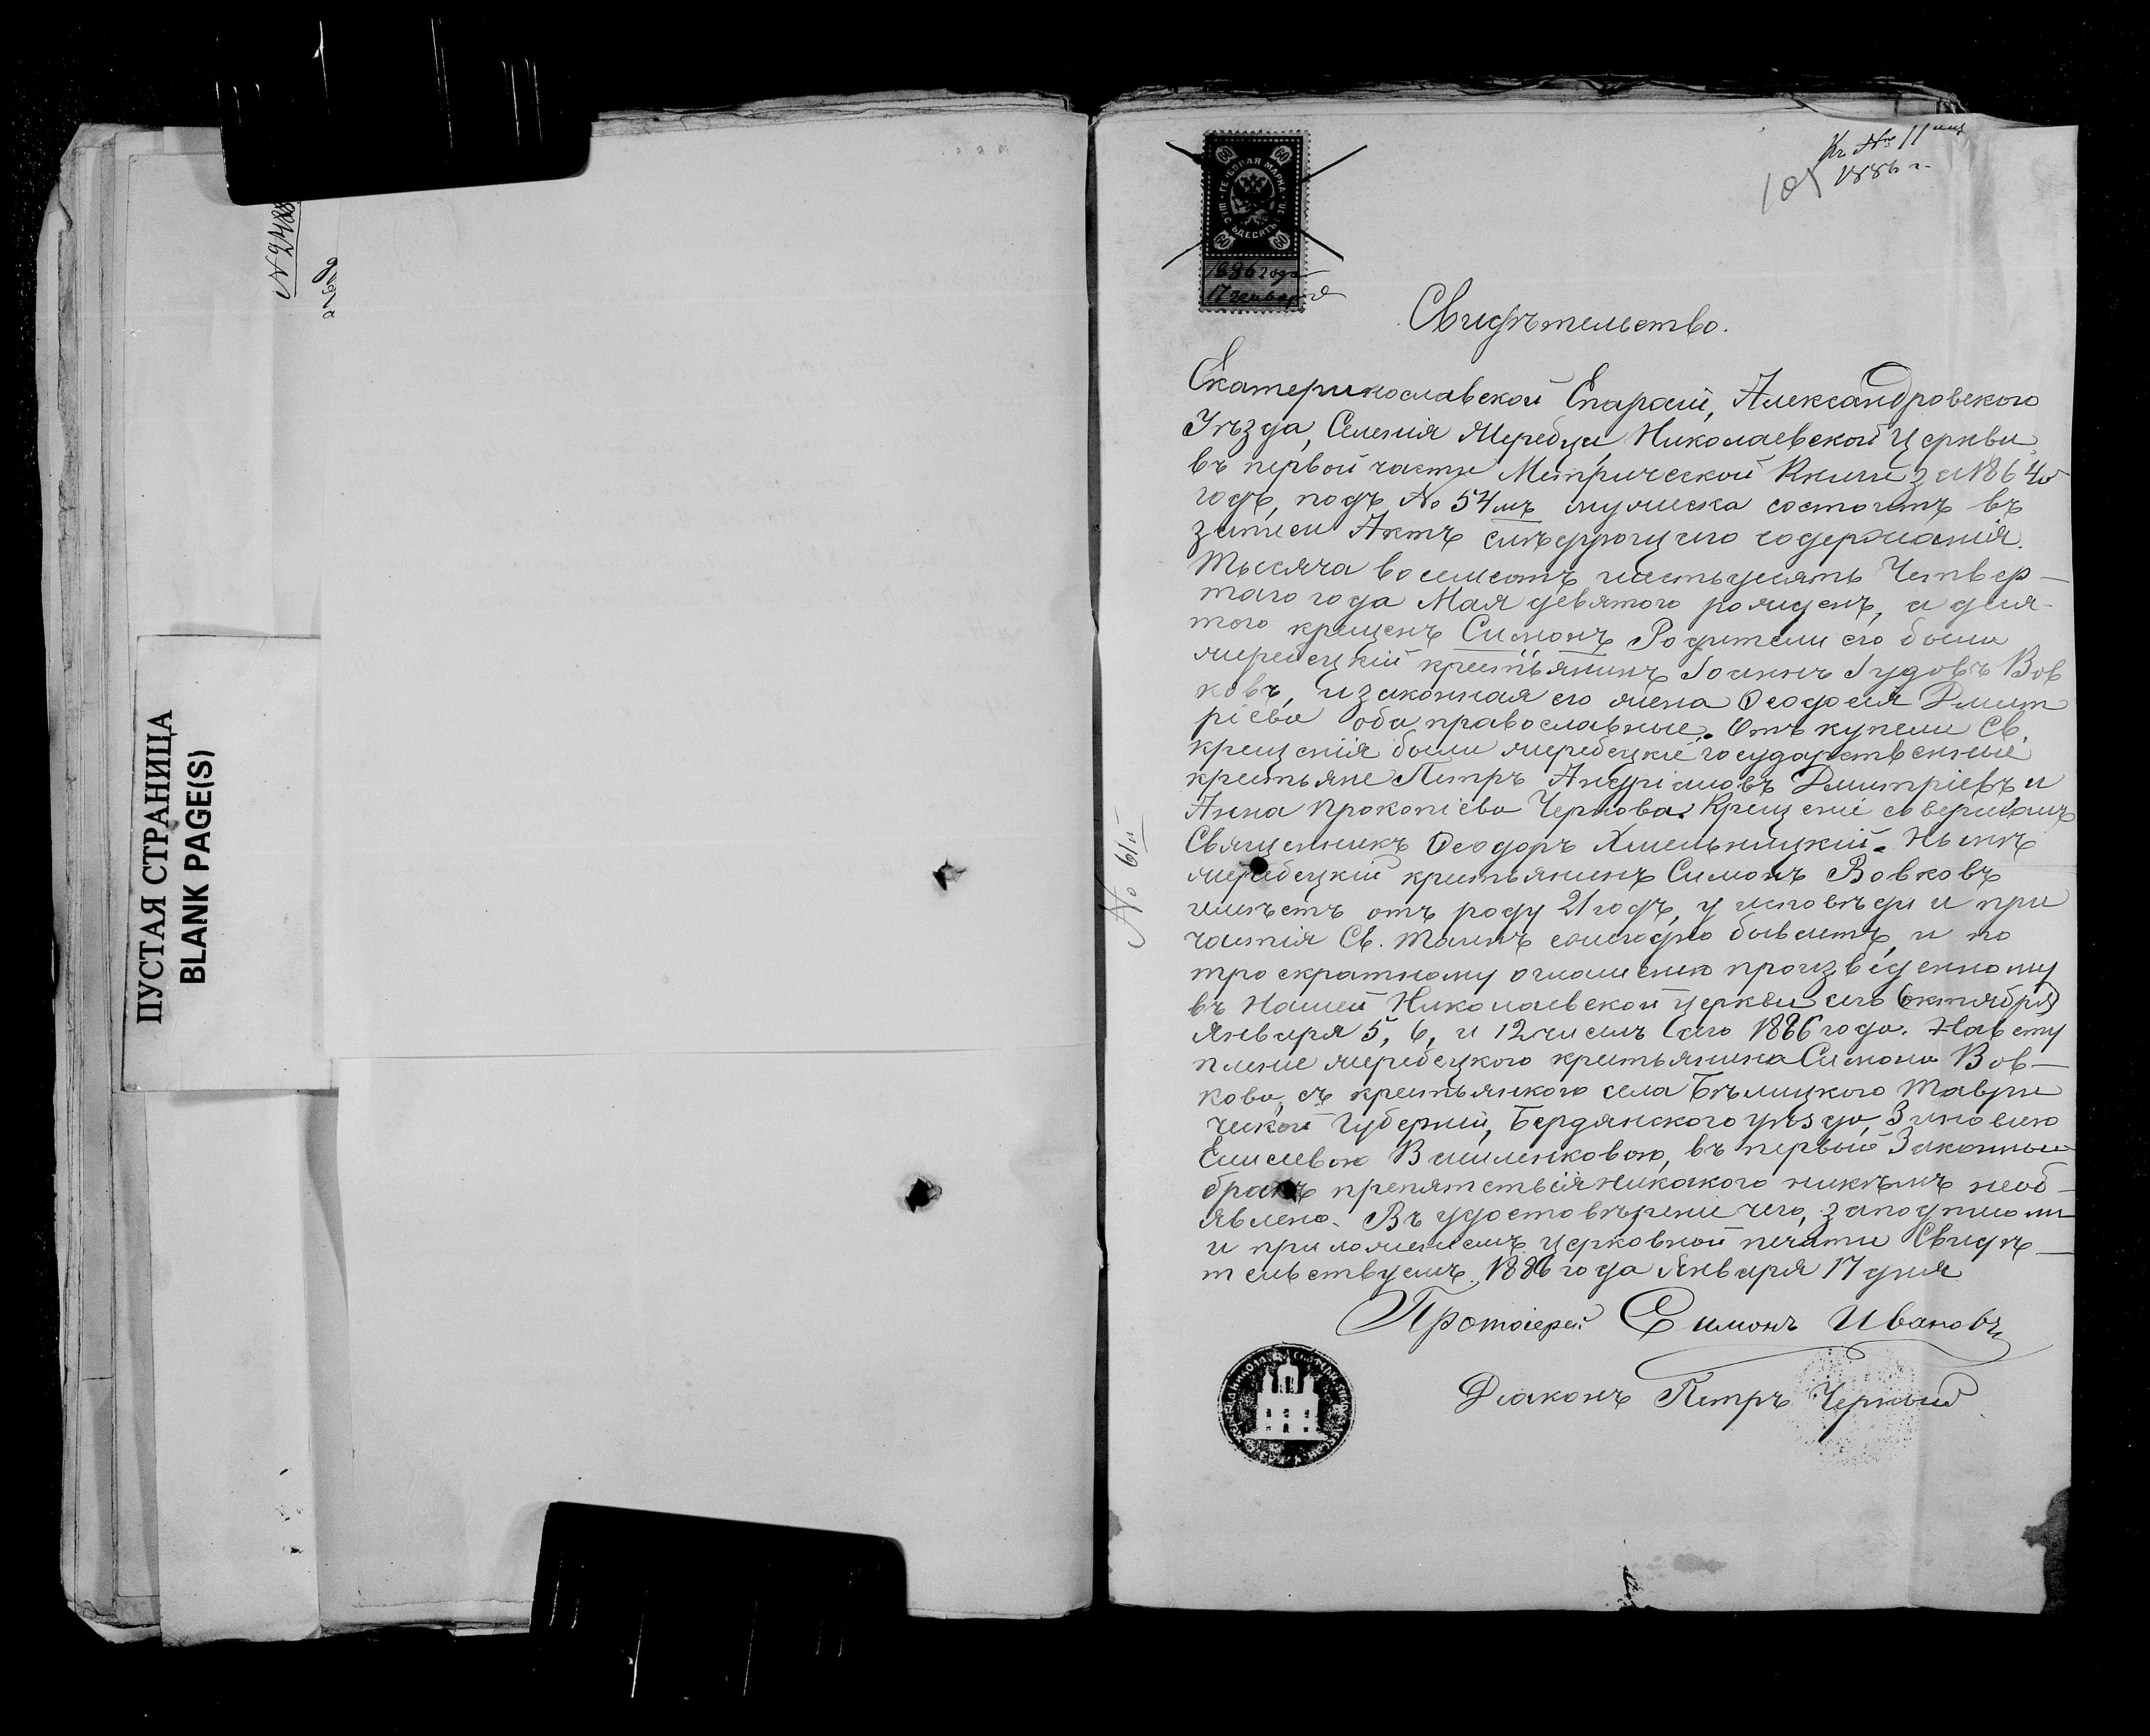 ПУСТАЯ СТРАНИЦА
BLANK PAGE(S)
№ 61й
1886 г.
ГЕРБОВАЯ МАРКА
ШЕСТЬДЕСЯТЪ
60 60
60 60
1886 года
17 генваря
Свидѣтельство.
Екатеринославской Епархіи, Александровского
Уѣзда, Селенія Жеребца, Николаевской Церкви
въ первой части Метрической Книги за 1864й
годъ, подъ № 54мъ мужеска состоитъ въ
записи Актъ слѣдующаго содержанія.
Тысяча восемсотъ шестьдесятъ Четвер-
таго года Мая девятого рожденъ, а деся-
того крещенъ Симонъ Родители его были
жеребецкій крестьянинъ Іоаннъ Іудовъ Вов
ковъ, и законная его жена Ѳеодосія Дмит
ріева оба православные. Отъ купели Св.
крещенія были жеребецкіе государственные
крестьяне Петръ Дмитріевъ и
Анна Прокопіева Чернова. Крещеніе совершилъ
Священникъ Ѳеодоръ Хмельницкій. Нынѣ
жеребецкій крестьянинъ Симонъ Вовковъ
имѣетъ отъ роду 21 годъ, у исповѣди и при
частія Св. Таинъ ежегодно бываетъ, и по
троекратному оглашенію произведенному
въ Нашей Николаевской церкви сего (октября)
Января 5, 6, и 12 числъ сего 1886 года. На всту
пленіе жеребецкого крестьянина Симона Вов-
кова, съ крестьянкою села Бѣлицкого Таври
ческой Губерніи, Бердянского уѣзда, Зиновіею
Василенковою, въ первый Законный
бракъ препятствія никакого никѣмъ необ-
явлено. Въ удостовѣреніе чего, за подписомъ
и приложеніемъ церковной печати Свидѣ-
тельствуемъ. 1886 года Января 17 дня
Протоіерей Симонъ Ивановъ
Діаконъ Петръ Черный